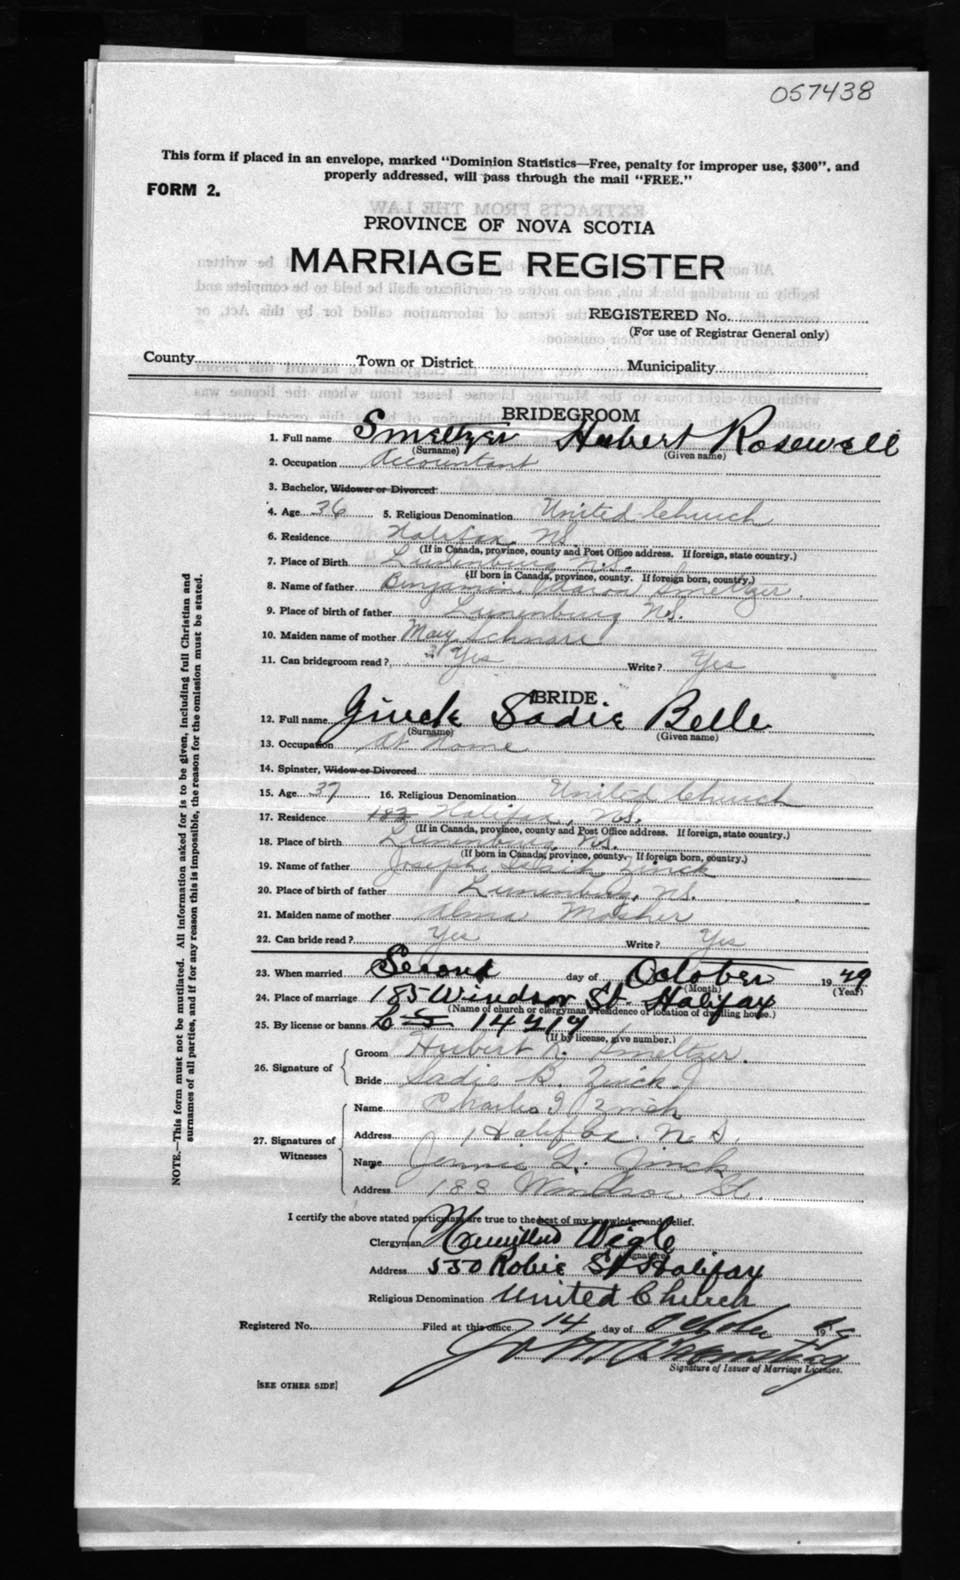 057438
This form if placed in an envelope, marked "Dominion Statistics—Free, penalty for improper use, $300", and
properly addressed, will pass through the mail "FREE."
FORM 2.
PROVINCE OF NOVA SCOTIA
MARRIAGE REGISTER
REGISTERED No.
(For use of Registrar General only)
County Town or District Municipality
BRIDEGROOM
1. Full name Smeltzer Hubert Rosewell
(Surname) (Given name)
2. Occupation Accountant
3. Bachelor, Widower or Divorced
4. Age 36 5. Religious Denomination United Church
6. Residence Halifax, N.S.
(If in Canada, province, county and Post Office address. If foreign, state country.)
7. Place of Birth Lunenburg N.S.
(If born in Canada, province, county. If foreign born, country.)
8. Name of father Benjamin Aaron Smeltzer.
9. Place of birth of father Lunenburg N.S.
10. Maiden name of mother Mary Schnare
11. Can bridegroom read? Yes Write? Yes
BRIDE
12. Full name Zinck Sadie Belle
(Surname) (Given name)
13. Occupation At Home
14. Spinster, Widow or Divorced
15. Age 37 16. Religious Denomination United Church
17. Residence 183 Halifax, N.S.
(If in Canada, province, county and Post Office address. If foreign, state country.)
18. Place of birth Lunenburg, N.S.
(If born in Canada, province, county. If foreign born, country.)
19. Name of father Joseph Zinck
20. Place of birth of father Lunenburg, N.S.
21. Maiden name of mother Alma Mosher
22. Can bride read? Yes Write? Yes
23. When married Second day of October 1929
(Month) (Year)
24. Place of marriage 185 Windsor St. Halifax
(Name of church or clergyman's residence or location of dwelling house.)
25. By license or banns
(If by license, give number.)
26. Signature of Groom Hubert R. Smeltzer.
Bride Sadie B. Zinck
27. Signatures of Witnesses Name Charles Zinck
Address Halifax. N.S.
Name Jennie L. Zinck
Address 183 Windsor St.
I certify the above stated particulars are true to the best of my knowledge and belief.
Clergyman Hamilton Wigle
(Signature)
Address 550 Robie St Halifax
Religious Denomination United Church
Registered No. Filed at this office 14 day of October 19
Signature of Issuer of Marriage Licenses.
[SEE OTHER SIDE]
NOTE.—This form must not be mutilated. All information asked for is to be given, including full Christian and
surnames of all parties, and if for any reason this is impossible, the reason for the omission must be stated.